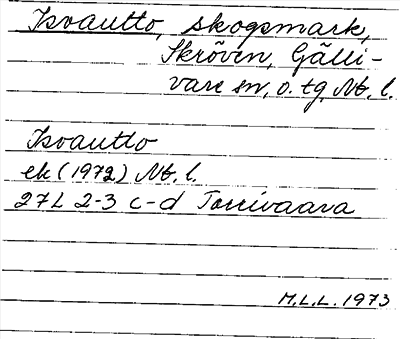 Isovautto, skogsmark,
Skröven, Gälli-
vare sn, o. tg, Nb. l.
Isovautto
ek (1972) Nb. l.
27L 2-3 c-d Torrivaara
M.L.L. 1973